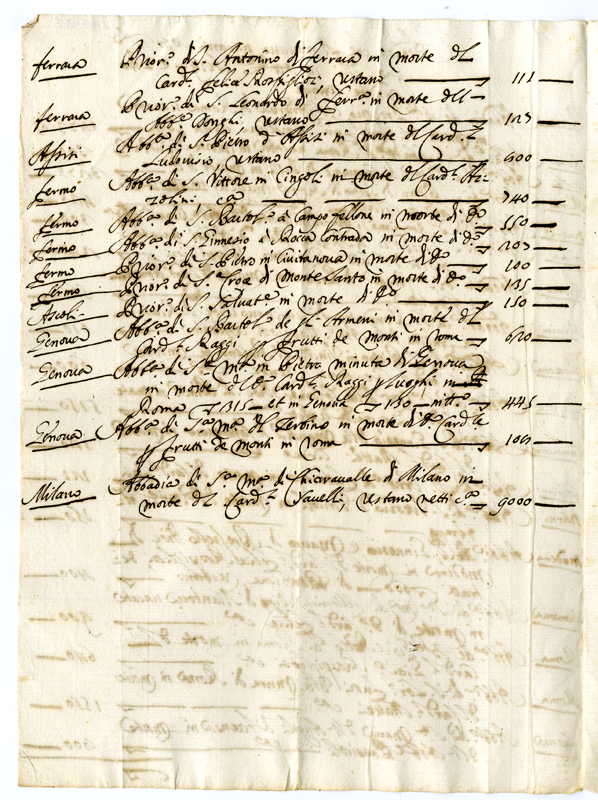 ferrara Prior.º di S. Antonino di ferrara in morte del
Card.l felice Rospigliosi, restano 111
ferrara Prior.º di S. Leonardo di ferr.ª in morte dell
Abb.e Bonghi, restano 123
Assisi Abb.ª di S. Pietro d'Assisi in morte del Card.l
Ludovisio restano 600
fermo Abb.ª di S. Vittore in Cingoli in morte del Card.l Az-
zolini cª 740
fermo Abb.ª di S. Bartol.º à Campofellone in morte di dº 550
fermo Abb.ª di S. Ginnesio à Rocca Contrada in morte di dº 203
fermo Prior.º di S. Pietro in Civitanova in morte di dº 100
fermo Prior. di S.ª Croce di Monte Santo in morte di dº 135
Ascoli Prior.º di S. Salvat.e in morte di dº 150
Genova Abb.ª di S. Bartol.º de gl'Armeni in morte del
Card.l Raggi frutti de monti in roma 620
Genova Abb.ª di S.ª Mª in Pietra minuta di Genova
in morte del dº Card.l Raggi luoghi in
Roma 315 et in Genova 130 445
Genova Abb.ª di S.ª Mª del Zerbino in morte di dº Card.le
frutti de monti in roma 100
Milano Abbadia di S.ª Mª di Chiaravalle di Milano in
morte del Card.l Savelli, restano netti cª 9000